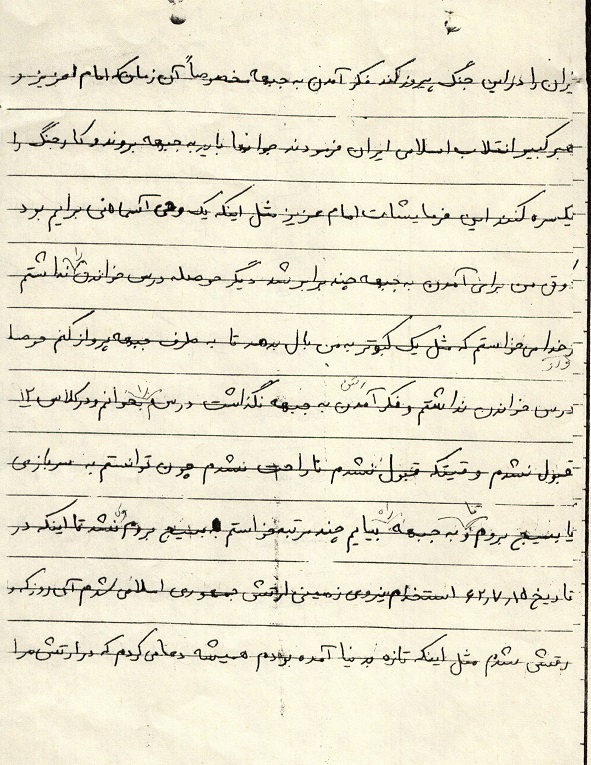 یران را در این جنگ پیروز کند فکر آمدن به جبهه مخصوصاً آن زمان که امام عزیز و
هبر کبیر انقلاب اسلامی ایران فرمودند جوانها باید به جبهه بروند و کار جنگ را
یکسره کنند این فرمایشات امام عزیز مثل اینکه یک وحی آسمانی برایم بود
وق من برای آمدن به جبهه چند برابر شد دیگر حوصله درس خواندن را نداشتم
خدا می خواستم که مثل یک کبوتر به من بال بدهد تا به طرف جبهه پرواز کنم حوصله
درس خواندن نداشتم و فکر آمدن به جبهه نگذاشت درسم را بخوانم و در کلاس ۱۲
قبول نشدم وقتیکه قبول نشدم ناراحت نشدم چون توانستم به سربازی
یا بسیج بروم و تا به جبهه راه بیایم چند مرتبه خواستم به بسیج بروم ولی نشد تا اینکه در
تاریخ ۶۲٫۷٫۱۵ استخدام نیروی زمینی ارتش جمهوری اسلامی شدم آن روز که
رتشی شدم مثل اینکه تازه به دنیا آمده بودم همیشه دعا می کردم که در ارتش مرا